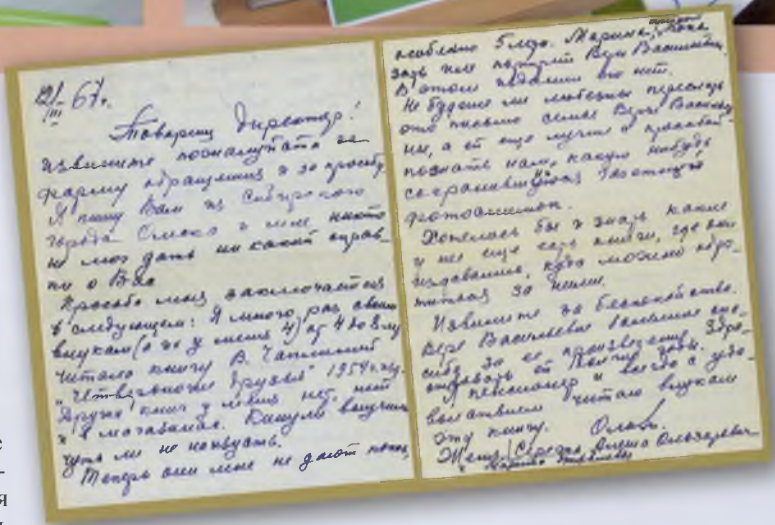 21/III 67 г.
Товарищ директор!
Извините пожалуйста за
форму обращения и за просьбу
Я пишу Вам из Сибирского
города Омска и мне никто
не мог дать ни какой справ-
ки о Вас
Просьба моя заключается
в следующем: Я много раз своим
внукам (а их у меня 4) от 4 до 8 лет
читала книгу В. Чаплиной
"Четвероногие друзья" 1959 г.
Других книг у меня нет, нет
и в магазинах. Книгу внучата
чуть ли не наизусть.
Теперь они мне не дают покоя,
особенно 5 лет. Марина,
зать им портрет Веры Васильевны.
В этом издании его нет.
Не будете ли любезны переслать
это письмо семье Веры Василь-
ны, а ей еще лучше и
нам, какую нибудь
фотоснимок.
Хотелось бы и знать какие
у неё еще есть книги, где они
издавались, куда можно обра-
титься за ними.
Извините за беспокойство.
Вере Васильевне большое спа-
сибо за ее произведения.
Я пенсионер и всегда с удо-
вольствием читаю внукам
эту книгу.
е
-
я